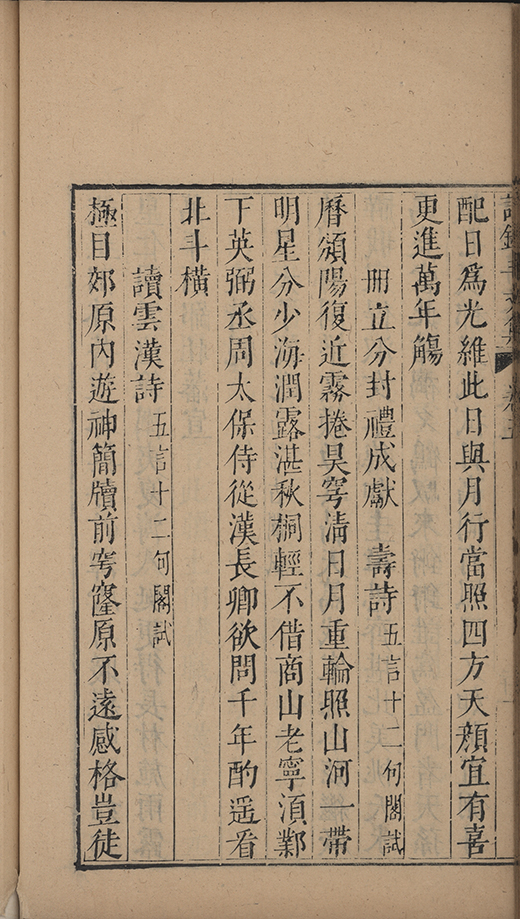 配日爲光維此日與月行當照四方天顔宜有喜
更進萬年觴
冊立分封禮成獻 壽詩五言十二句閣試
曆頒陽復近霧捲昊穹清日月重輪照山河一帶
明星分少海潤露湛秋桐輕不借商山老寧須鄴
下英弼丞周太保侍從漢長卿欲問千年酌遥看
北斗橫
讀雲漢詩五言十二句閣試
極目郊原內遊神簡牘前穹窿原不遠感格豈徒